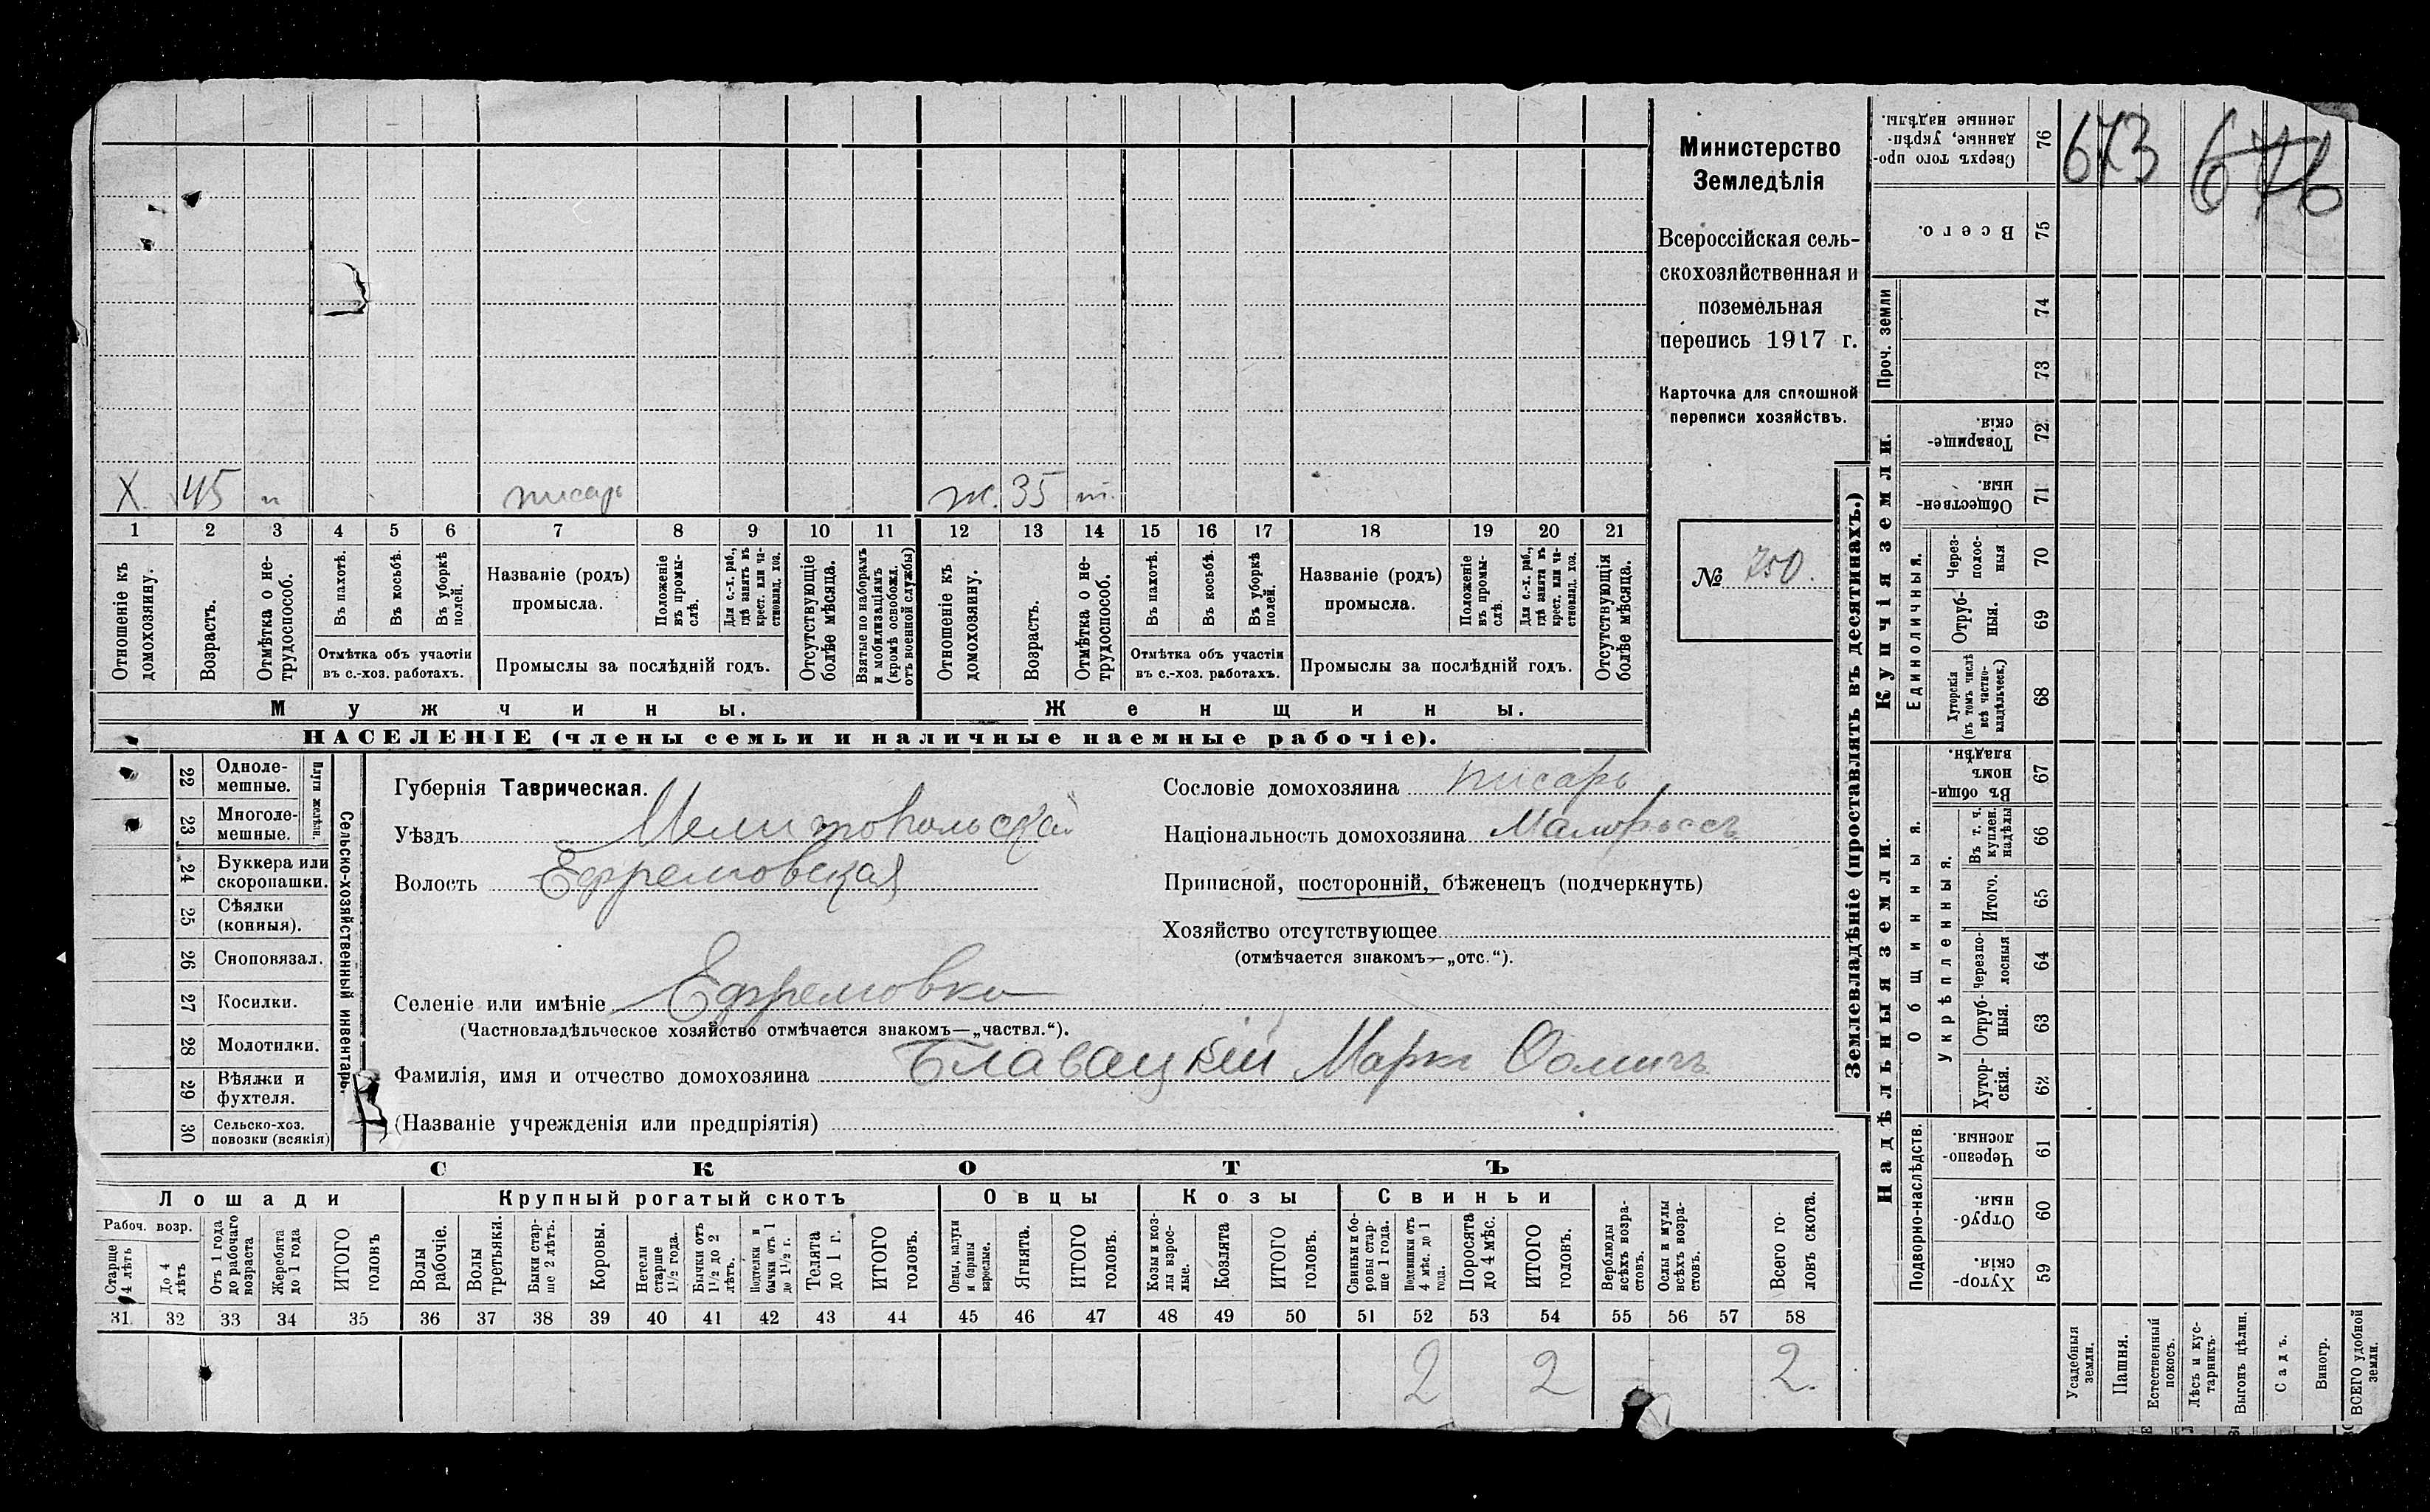 Х. 45 п писарь ж. 35 п.
1 2 3 4 5 6 7 8 9 10 11 12 13 14 15 16 17 18 19 20 21
Отношеніе къ домохозяину.
Возрастъ.
Отмѣтка о не-трудоспособ.
Въ пахотѣ.
Въ косьбѣ.
Въ уборкѣ полей.
Отмѣтка объ участіи
въ с.-хоз. работахъ.
Названіе (родъ)
промысла.
Положеніе въ промы-слѣ.
Для с.-х. раб., гдѣ занятъ въ крест. или ча-стновлад. хоз.
Промыслы за послѣдній годъ.
Отсутствующіе болѣе мѣсяца.
Взятые по наборамъ и мобилизаціямъ (кромѣ освобожд. отъ военной службы)
Отношеніе къ домохозяину.
Возрастъ.
Отмѣтка о не-трудоспособ.
Въ пахотѣ.
Въ косьбѣ.
Въ уборкѣ полей.
Отмѣтка объ участіи
въ с.-хоз. работахъ.
Названіе (родъ)
промысла.
Положеніе въ промы-слѣ.
Для с.-х. раб., гдѣ занята въ крест. или ча-стновлад. хоз.
Промыслы за послѣдній годъ.
Отсутствующія болѣе мѣсяца.
Мужчины.
Женщины.
НАСЕЛЕНІЕ (члены семьи и наличные наемные рабочіе).
Министерство
Земледѣлія
Всероссійская сель-
скохозяйственная и
поземельная
перепись 1917 г.
Карточка для сплошной
переписи хозяйствъ.
№ 750.
22 Одноле-мешные.
23 Многоле-мешные.
Плуги желѣзн.
24 Буккера или скоропашки.
25 Сѣялки (конныя).
26 Сноповязал.
27 Косилки.
28 Молотилки.
29 Вѣялки и фухтеля.
30 Сельско-хоз. повозки (всякія)
Сельско-хозяйственный инвентарь.
Губернія Таврическая.
Уѣздъ Мелитопольскій
Волость Ефремовская
Селеніе или имѣніе Ефремовка
(Частновладѣльческое хозяйство отмѣчается знакомъ—„частвл.“).
Фамилія, имя и отчество домохозяина Блавацкій Маркъ Фомичъ
(Названіе учрежденія или предпріятія)
Сословіе домохозяина писарь
Національность домохозяина Малороссъ
Приписной, посторонній, бѣженецъ (подчеркнуть)
Хозяйство отсутствующее
(отмѣчается знакомъ—„отс.“).
СКОТЪ
Лошади
Крупный рогатый скотъ
Овцы
Козы
Свиньи
Рабоч. возр.
Старше 4 лѣтъ
До 4 лѣтъ
Отъ 1 года до рабочаго возраста
Жеребята до 1 года
ИТОГО головъ
Волы рабочіе.
Волы третьяки.
Быки стар-ше 2 лѣтъ.
Коровы.
Нетели старше 1½ года.
Бычки отъ 1½ до 2 лѣтъ.
Подтелки и бычки отъ 1 до 1½ г.
Телята до 1 г.
ИТОГО головъ.
Овцы, валухи и бараны взрослые.
Ягнята.
ИТОГО головъ.
Козы и коз-лы взрос-лые.
Козлята
ИТОГО головъ.
Свиньи и бо-ровы стар-ше 1 года.
Подсвинки отъ 4 мѣс. до 1 года.
Поросята до 4 мѣс.
ИТОГО головъ.
Верблюды всѣхъ возра-стовъ.
Ослы и мулы всѣхъ возра-стовъ.
Всего го-ловъ скота.
31 32 33 34 35 36 37 38 39 40 41 42 43 44 45 46 47 48 49 50 51 52 53 54 55 56 57 58
2 2 2.
673 676
Землевладѣніе (проставлять въ десятинахъ.)
Сверхъ того про-данные, укрѣп-ленные надѣлы. 76
Всего. 75
Проч. земли
74
73
Купчія земли.
Товарище-скія. 72
Обществен-ныя. 71
Единоличныя.
Через-полос-ныя 70
Отруб-ныя. 69
Хуторскія (въ томъ числѣ всѣ частно-владѣльческ.) 68
Надѣльныя земли.
Общинныя.
Въ общин-номъ владѣн. 67
Укрѣпленныя.
Въ т. ч. куплен. надѣлы 66
Итого. 65
Черезпо-лосныя 64
Отруб-ныя. 63
Хутор-скія. 62
Подворно-наслѣдств.
Черезпо-лосныя. 61
Отруб-ныя. 60
Хутор-скія. 59
Усадебныя земли.
Пашня.
Естественный покосъ.
Лѣсъ и кус-тарникъ.
Выгонъ цѣлин.
Садъ.
Виногр.
ВСЕГО удобной земли.